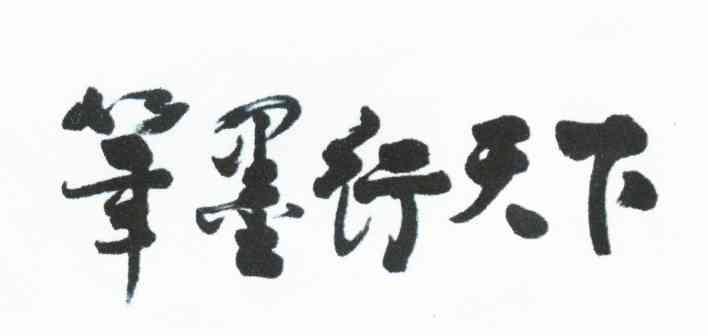 筆墨行天下